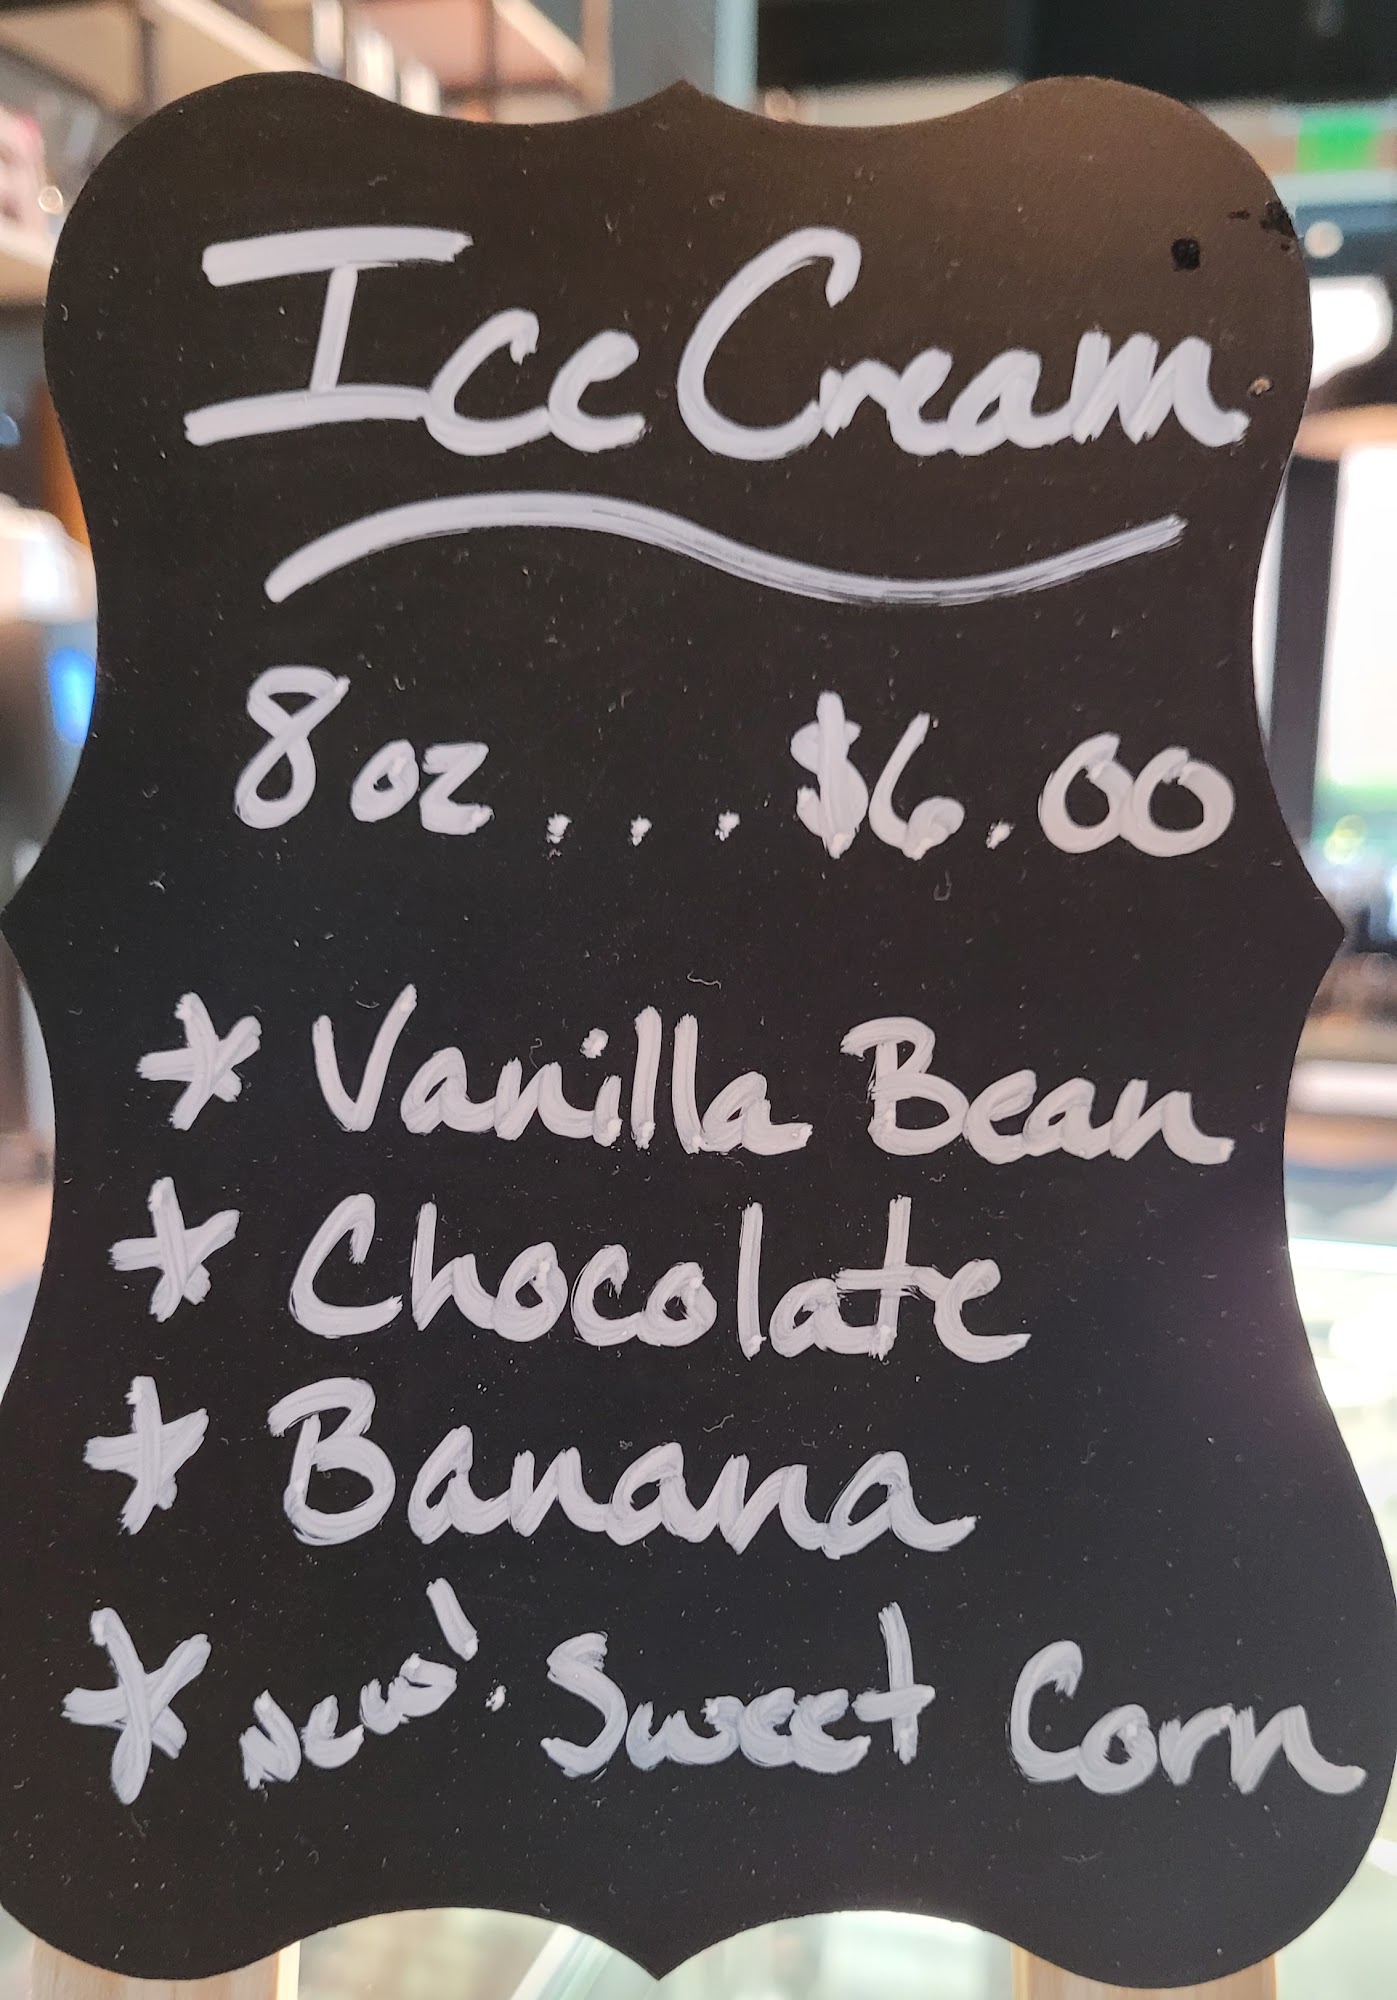 Ice Cream
8 oz ... $6.00
* Vanilla Bean
* Chocolate
* Banana
* New! Sweet Corn